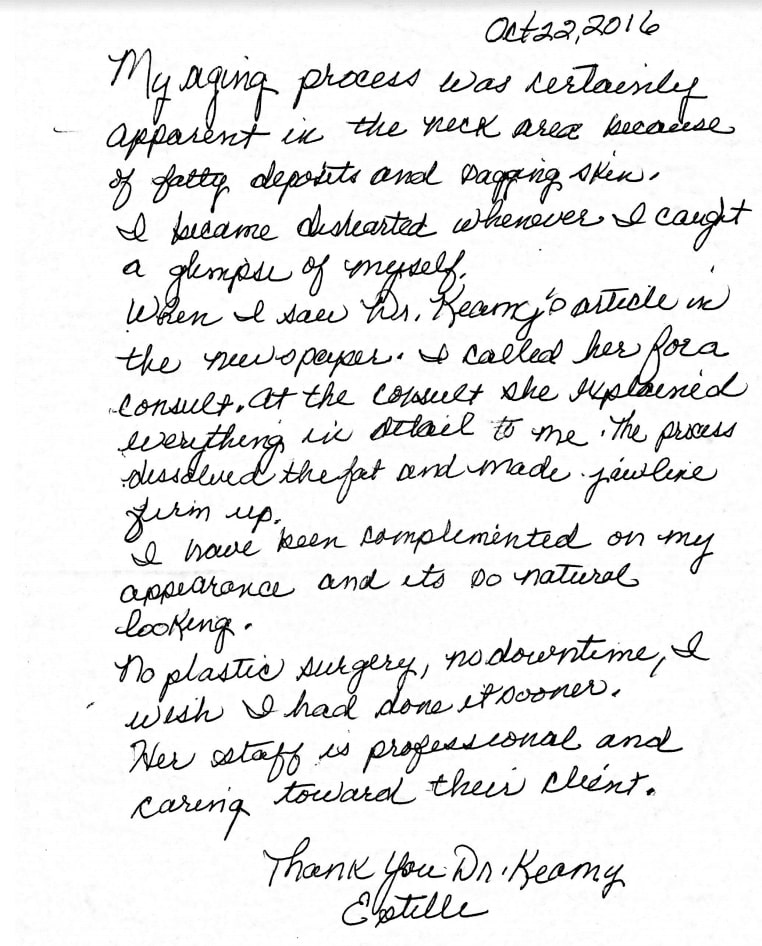 Oct 22, 2016
My aging process was certainly
apparent in the neck area because
of fatty deposits and sagging skin.
I became dishearted whenever I caught
a glimpse of myself.
When I saw Dr. Keamy's article in
the newspaper. I called her for a
consult. At the consult she explained
everything in detail to me. The process
dissolved the fat and made jawline
firm up.
I have been complemented on my
appearance and its so natural
looking.
No plastic surgery, no downtime, I
wish I had done it sooner.
Her staff is professional and
caring toward their client.
Thank You Dr. Keamy
Estelle